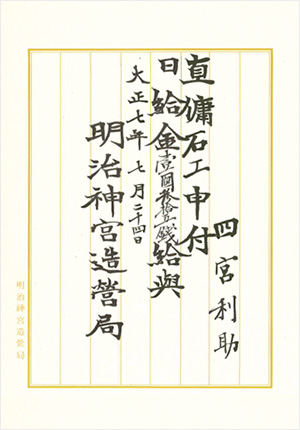 四宮利助
直傭石工申付
日給金壹圓錢給與
大正七年七月二十四日
明治神宮造營局
明治神宮造營局